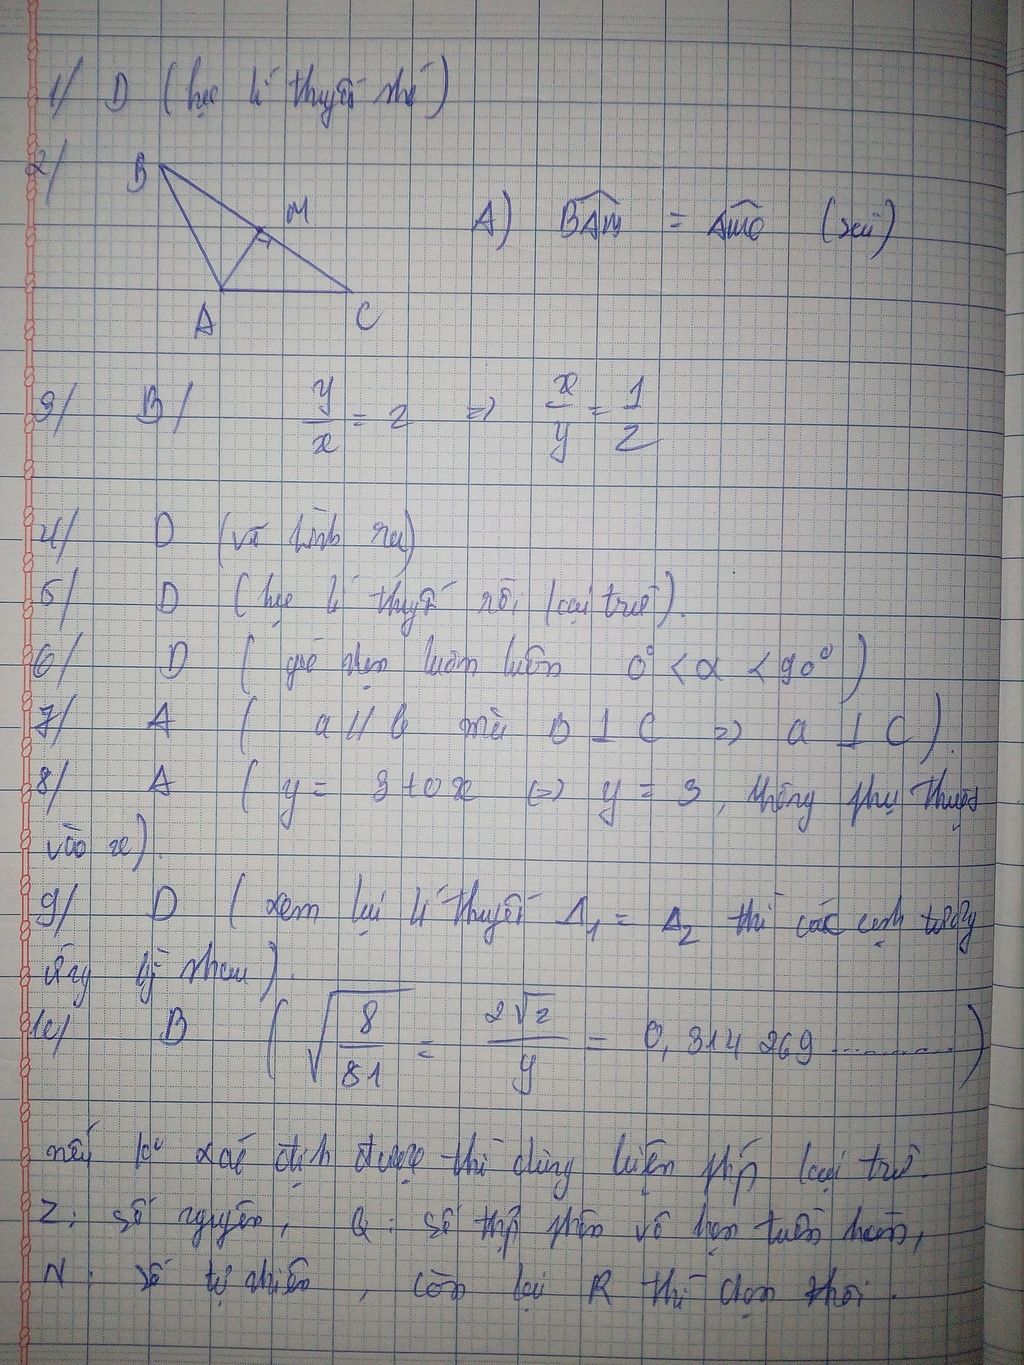 1/ D (học lí thuyết nhé)
2/ B M A C A) BAM = AMC (sai)
3/ B/ y/x = 2 => x/y = 1/2
4/ D (vẽ hình ra)
5/ D (học lí thuyết rồi loại trừ).
6/ D (góc nhọn luôn luôn 0° < α < 90°)
7/ A ( a // b mà b ⊥ C => a ⊥ C ).
8/ A ( y = 3 + 0x (=) y = 3, không phụ thuộc
vào x).
9/ D ( xem lại lí thuyết Δ1 = Δ2 thì các cạnh tương
ứng = nhau ).
10/ B ( √(8/81) = 2√2/9 = 0,314 269 ............ )
nếu ko xác định được thì dùng biện pháp loại trừ.
Z: số nguyên, Q: số thập phân vô hạn tuần hoàn,
N: số tự nhiên, còn lại R thì chọn thôi.